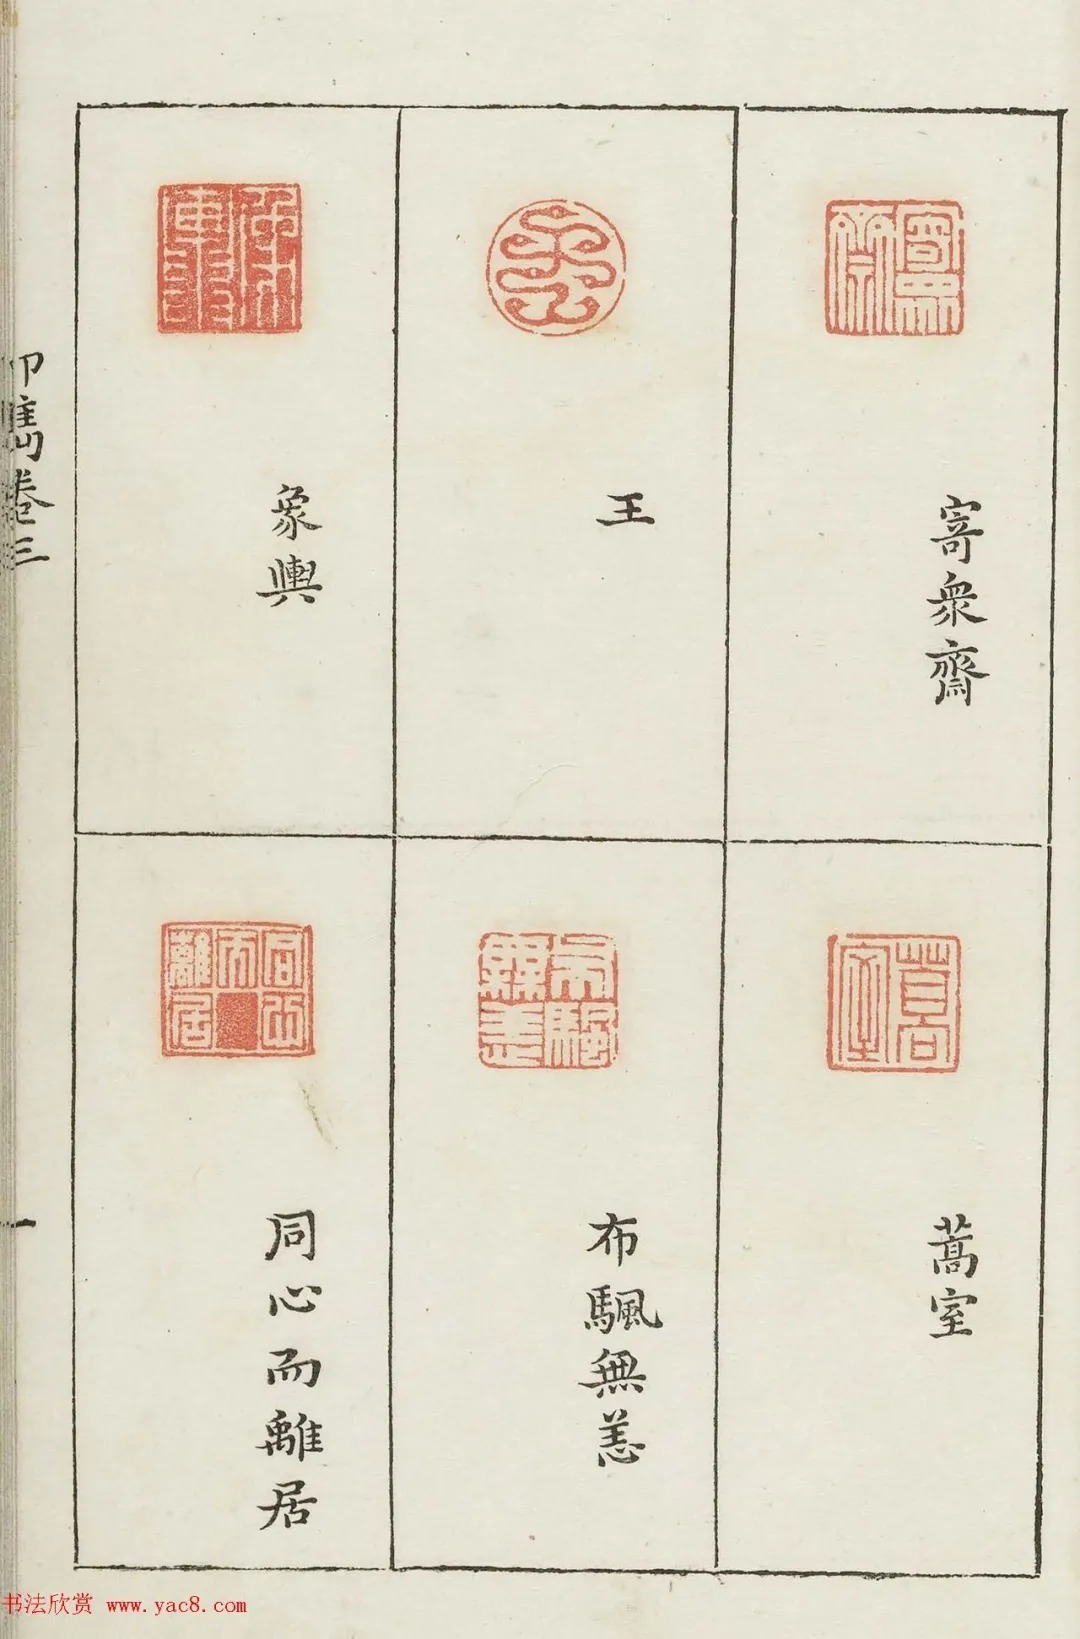 寄眾齋
王
象輿
蒿室
布颿無恙
同心而離居
印雋卷三
一
书法欣赏 www.yac8.com